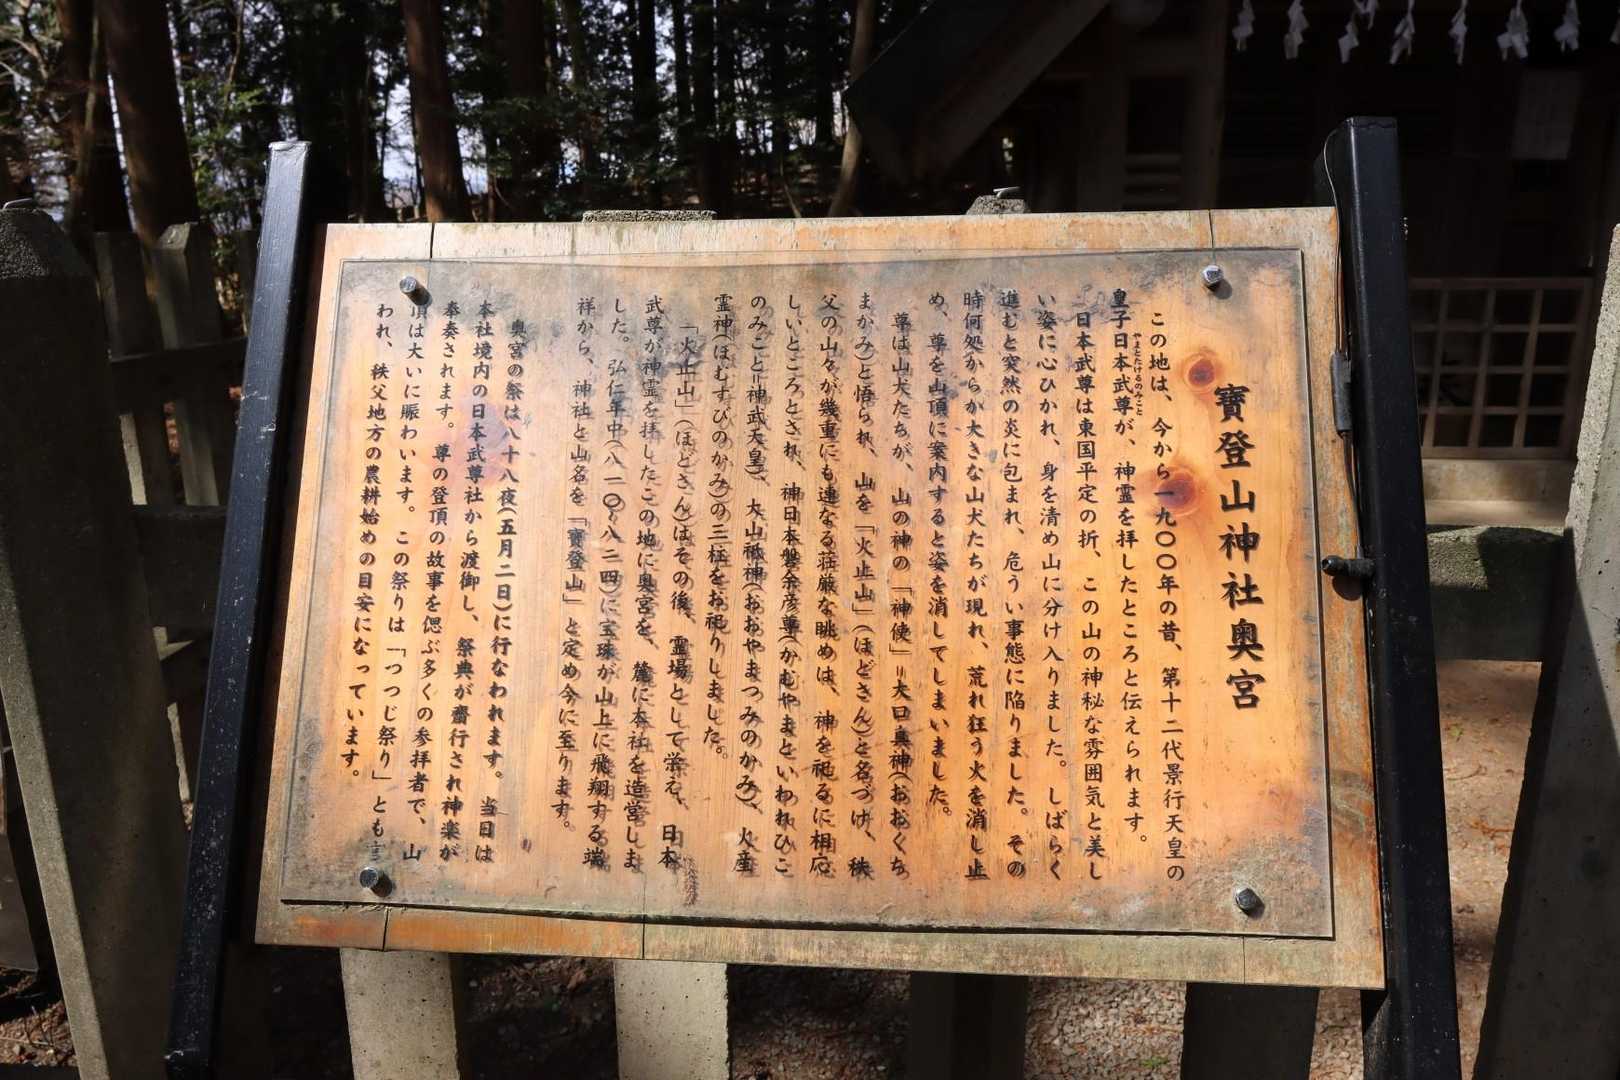 寶登山神社奥宮
この地は、今から一九〇〇年の昔、第十二代景行天皇の
皇子日本武尊が、神霊を拝したところと伝えられます。
やまとたけるのみこと
日本武尊は東国平定の折、この山の神秘な雰囲気と美し
い姿に心ひかれ、身を清め山に分け入りました。しばらく
進むと突然の炎に包まれ、危うい事態に陥りました。その
時何処からか大きな山犬たちが現れ、荒れ狂う火を消し止
め、尊を山頂に案内すると姿を消してしまいました。
尊は山犬たちが、山の神の「神使」＝大口真神(おおくち
まかみ)と悟られ、山を「火止山」(ほどさん)と名づけ、秩
父の山々が幾重にも連なる荘厳な眺めは、神を祀るに相応
しいところとされ、神日本磐余彦尊(かむやまといわれひこ
のみこと＝神武天皇)、大山祇神(おおやまつみのかみ)、火産
霊神(ほむすびのかみ)の三柱をお祀りしました。
「火止山」(ほどさん)はその後、霊場として栄え、日本
武尊が神霊を拝したこの地に奥宮を、麓に本社を造営しま
した。弘仁年中(八一〇~八二四)に宝珠が山上に飛翔する端
祥から、神社と山名を「寶登山」と定め今に至ります。
奥宮の祭は八十八夜(五月二日)に行なわれます。当日は
本社境内の日本武尊社から渡御し、祭典が齋行され神楽が
奉奏されます。尊の登頂の故事を偲ぶ多くの参拝者で、山
頂は大いに賑わいます。この祭りは「つつじ祭り」とも言
われ、秩父地方の農耕始めの目安になっています。